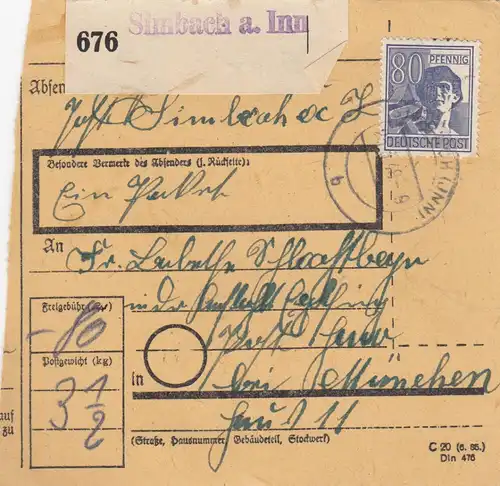 676 Simbach a. Inn
80 PFENNIG
DEUTSCHE POST
Absen
Post Simbach a. I
(INN)
b
Besondere Vermerke des Absenders (s. Rückseite):
Ein Paket
An
Fr. Babette
in der
Freigebühr (Rpf)
- 80
Post Haar
Postgewicht (kg)
3 1/2
in bei München
Haus 11
auf
zu
(Straße, Hausnummer, Gebäudeteil, Stockwerk)
C 20 (6. 86.)
Din 476